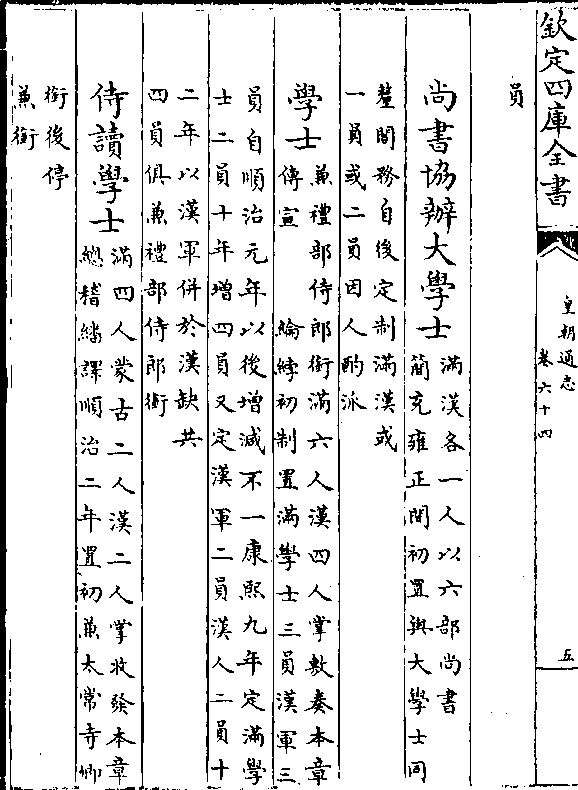 欽定四庫全書
皇朝通志
卷六十四
五
員
尚書協辦大學士
滿漢各一人以六部尚書
簡充雍正間初置與大學士同
釐閣務自後定制滿漢或
一員或二員因人酌派
學士
兼禮部侍郎銜滿六人漢四人掌敷奏本章
傳宣 綸綍初制置滿學士三員漢軍三
員自順治元年以後增減不一康熙九年定滿學
士二員十年增四員又定漢軍二員漢人二員十
二年以漢軍併於漢缺共
四員俱兼禮部侍郎銜
侍讀學士
滿四人蒙古二人漢二人掌收發本章
總稽繙譯順治二年置初兼太常寺卿
銜後停
兼銜